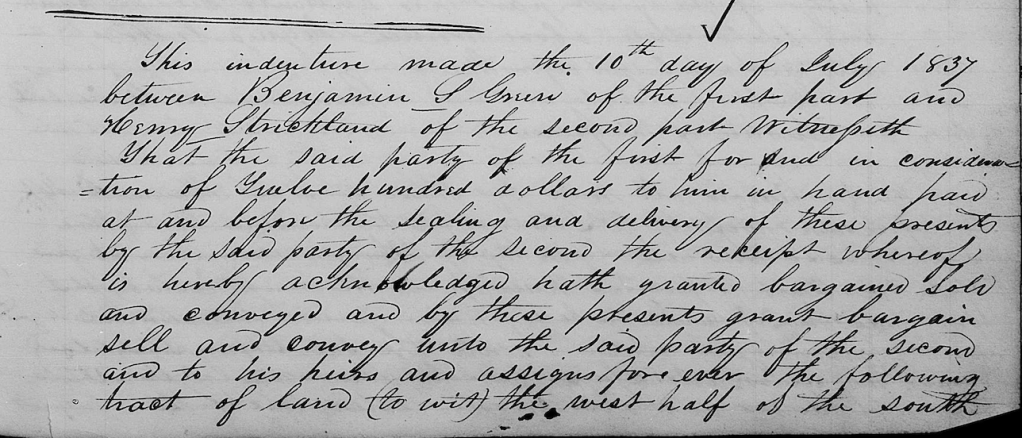 This indenture made the 10th day of July 1837
between Benjamin S Green of the first part and
Henry Strickland of the second part Witnesseth
That the said party of the first for and in considera=
=tion of Twelve hundred dollars to him in hand paid
at and before the sealing and delivery of these presents
by the said party of the second the receipt whereof
is hereby acknowledged hath granted bargained sold
and conveyed and by these presents grant bargain
sell and convey unto the said party of the second
and to his heirs and assigns forever the following
tract of land (to wit) the west half of the south